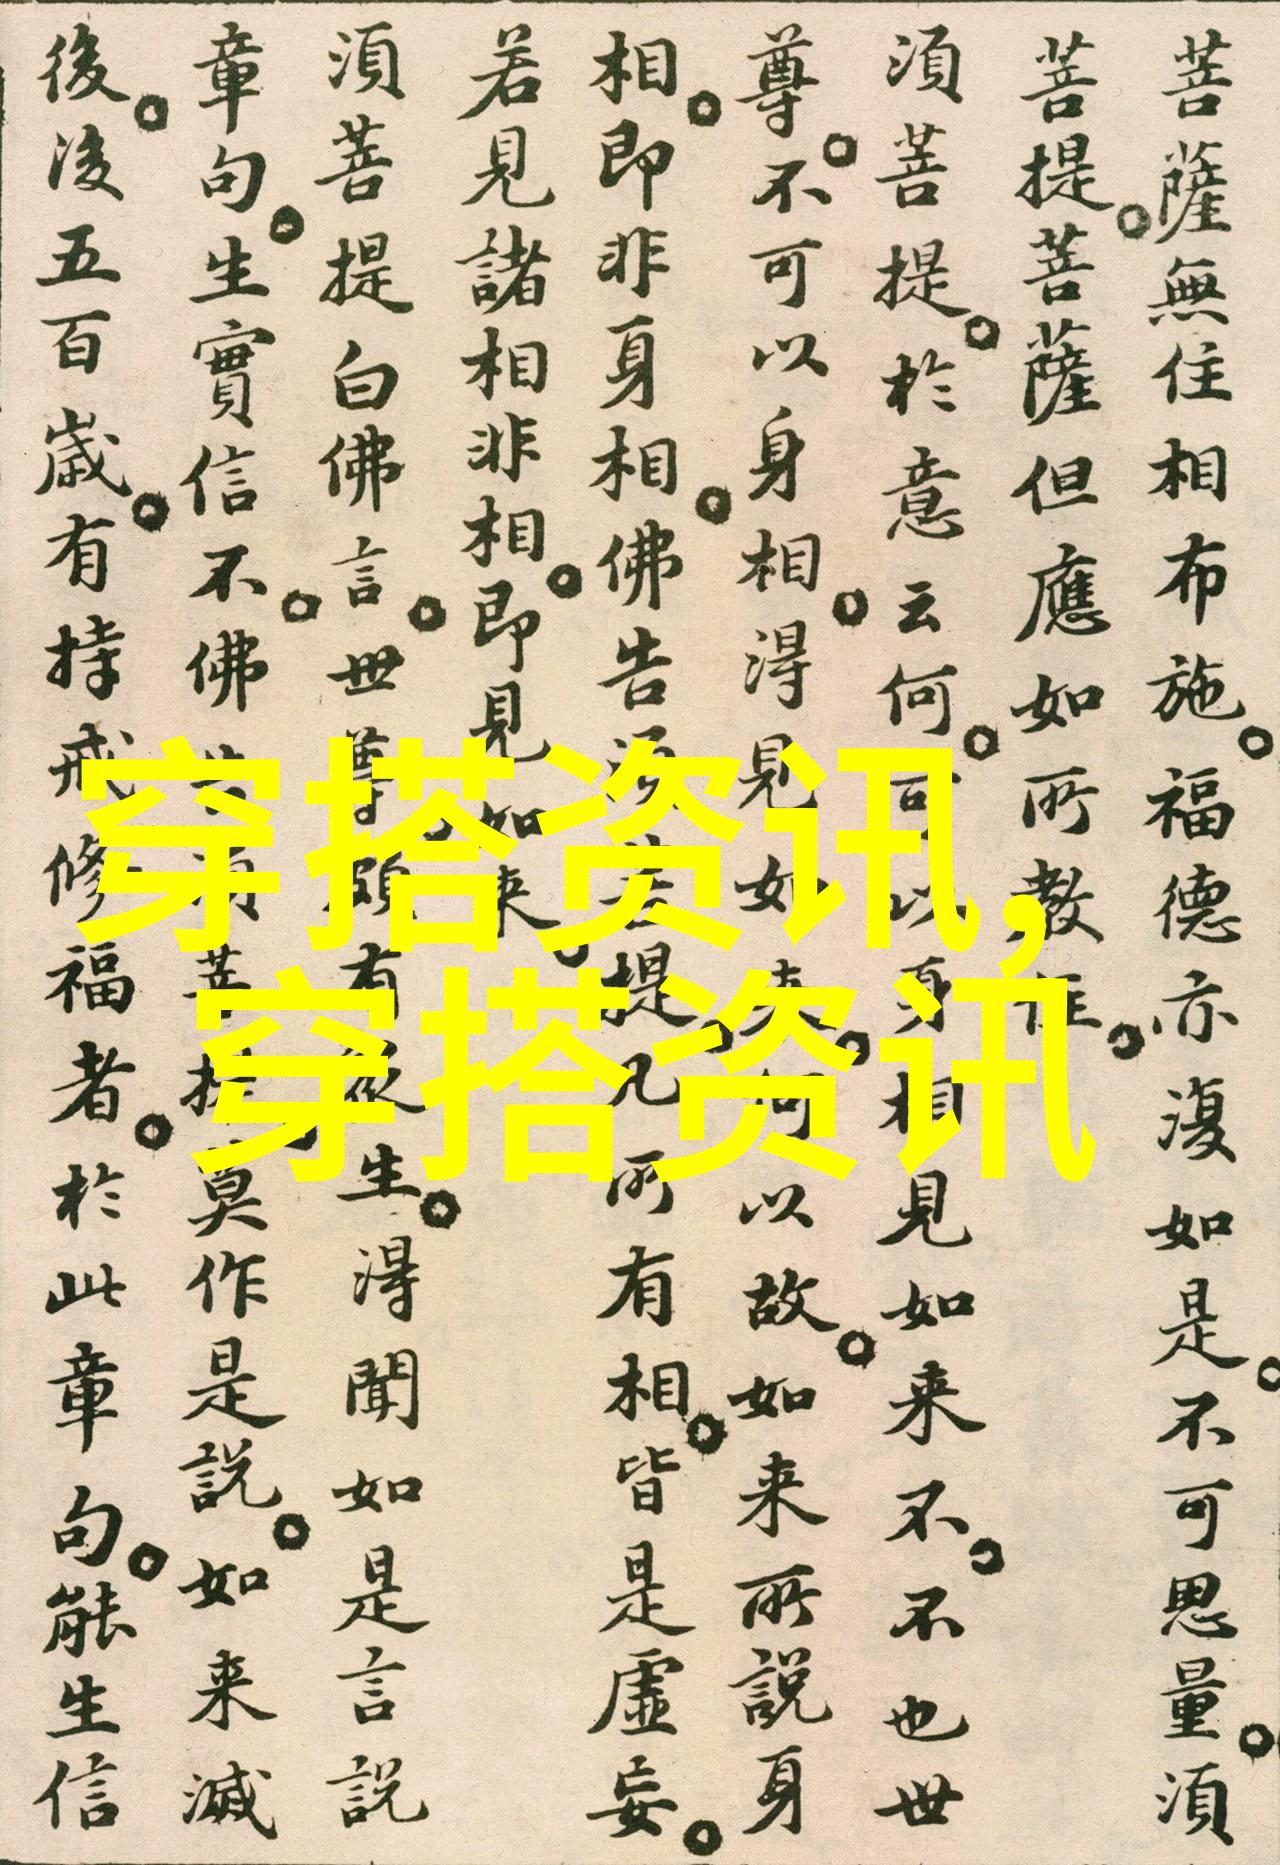 菩薩無住相布施。福德亦復如是。不可思量。須
菩提。菩薩但應如所教住。
須菩提。於意云何。可以身相見如来不。不也世
尊。不可以身相。得見如来。何以故。如来所說身
相。即非身相。佛告須菩提。凡所有相。皆是虛妄。
若見諸相非相。即見如来。
須菩提白佛言。世尊。頗有衆生。得聞如是言說
章句。生實信不。佛告須菩提。莫作是說。如来滅
後。後五百歲。有持戒修福者。於此章句。能生信
穿搭资讯,
穿搭资讯